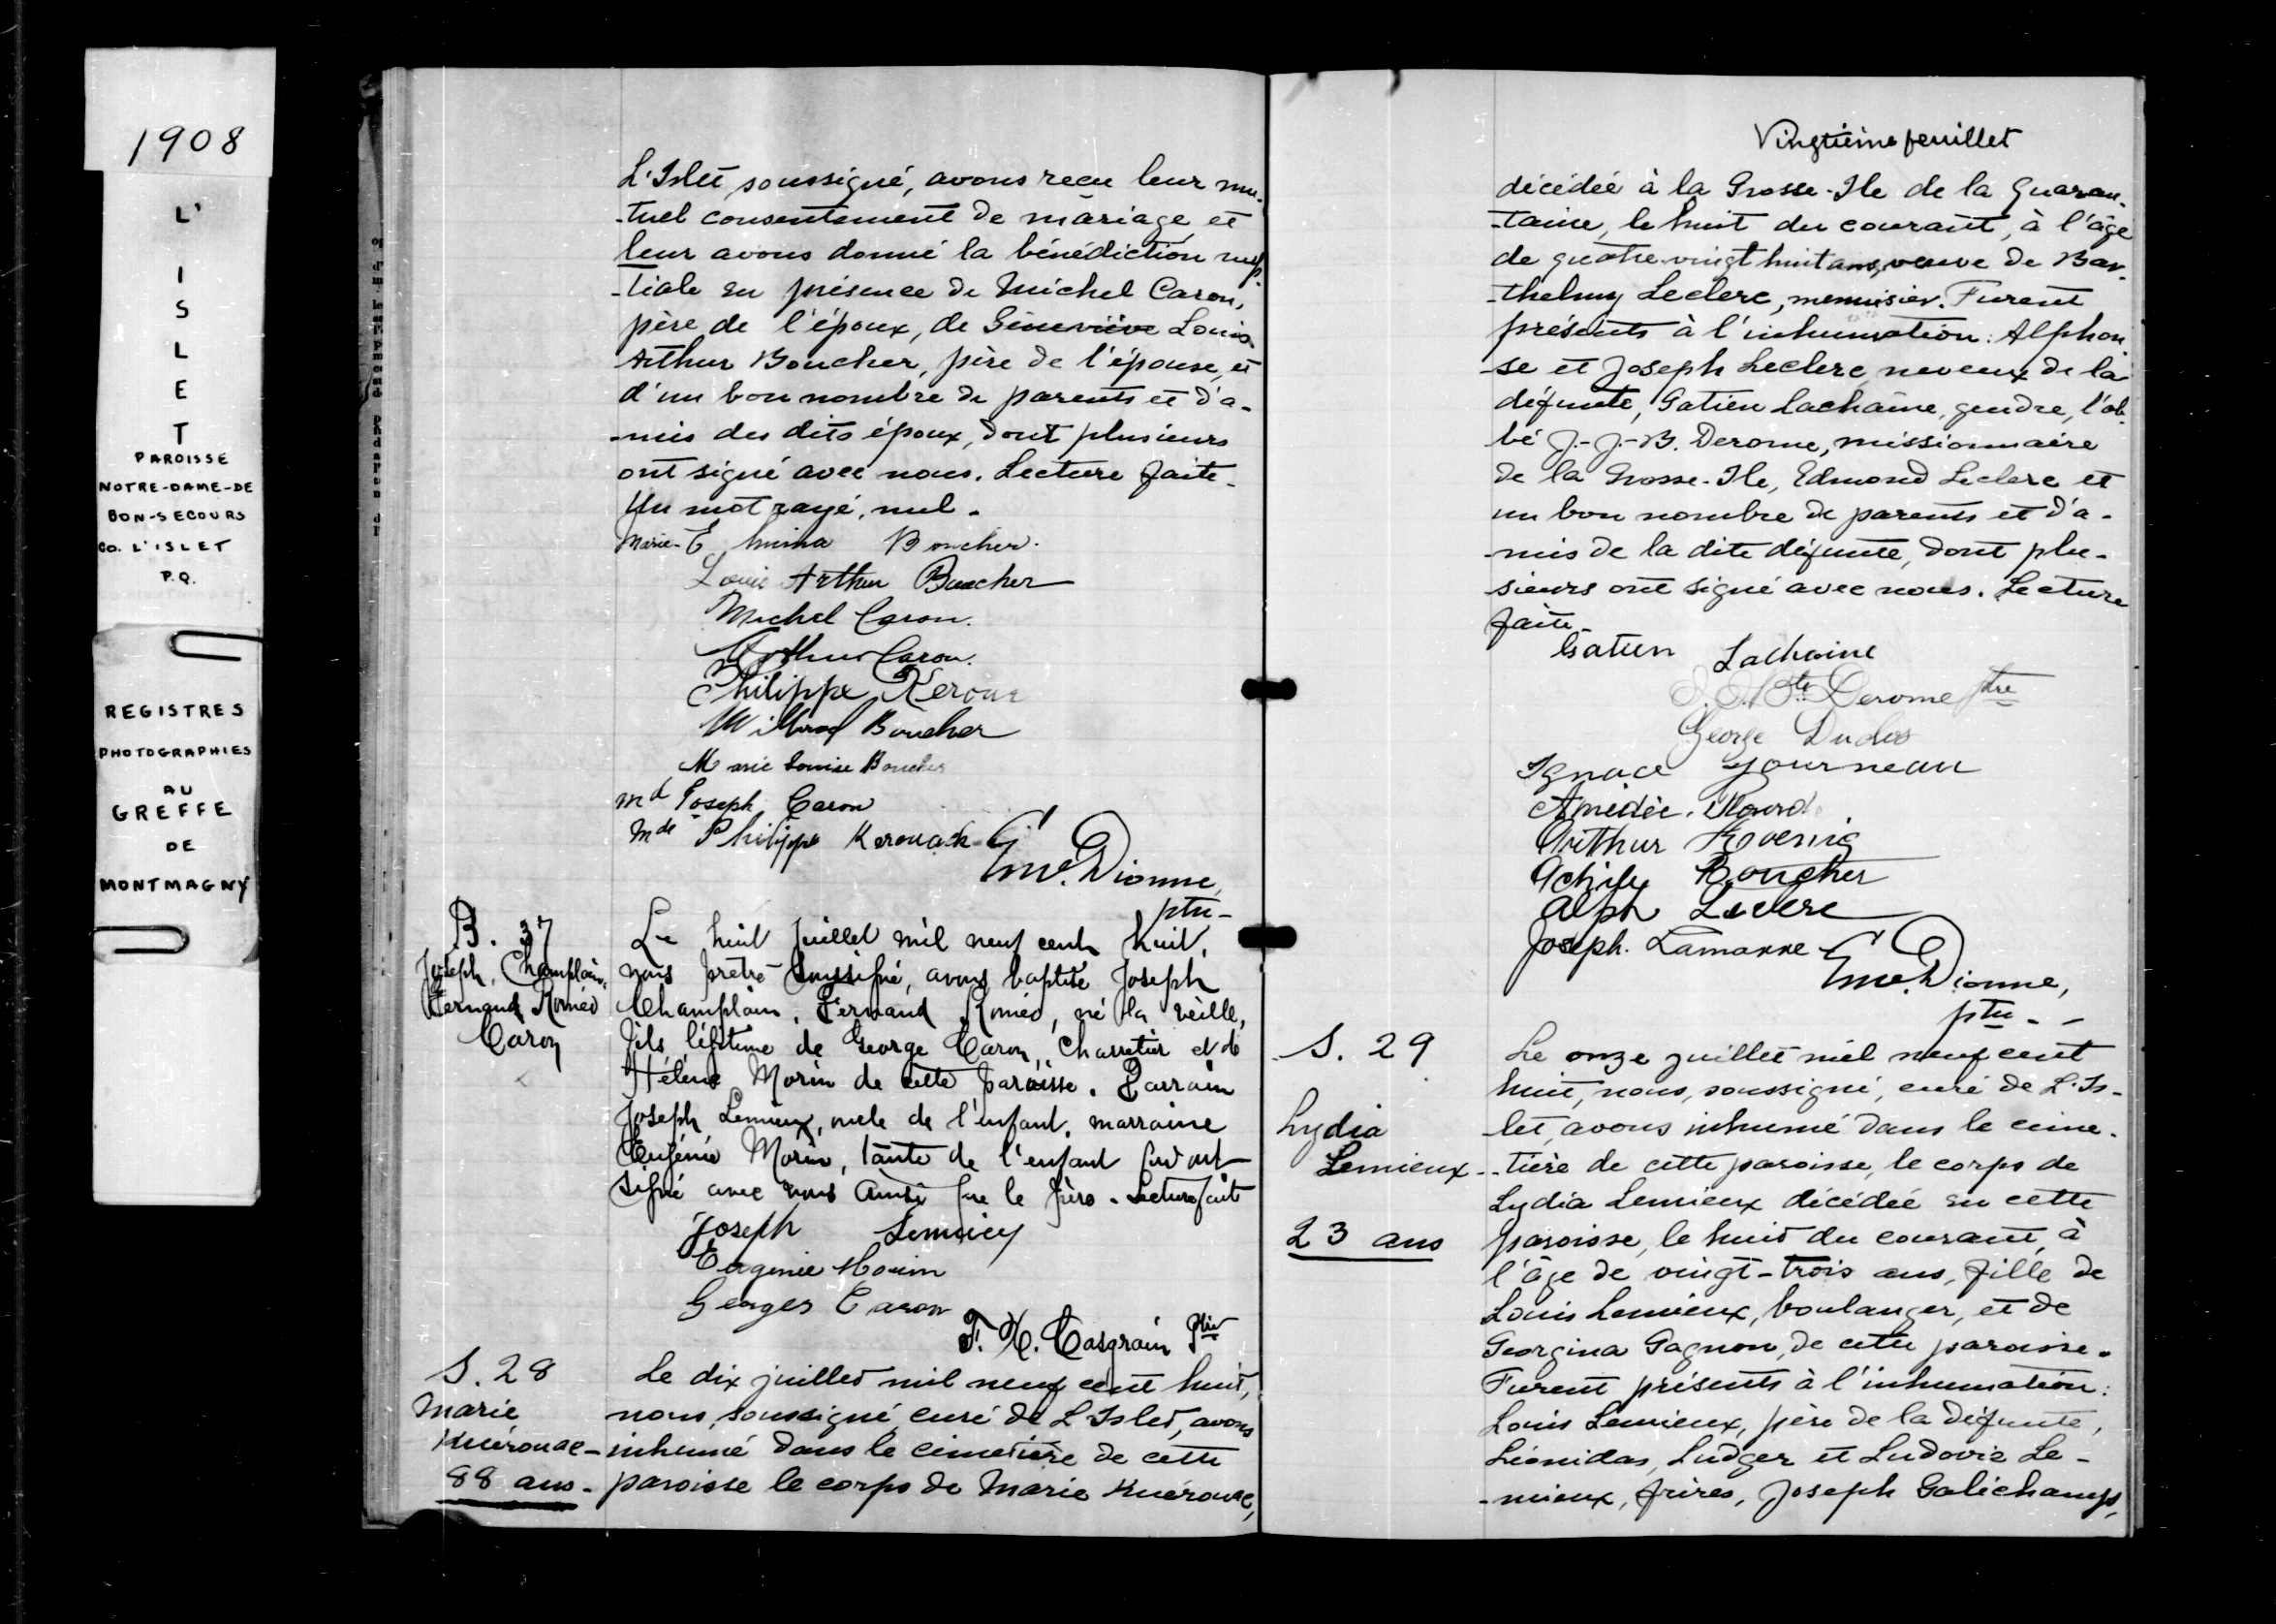 1908
L'
I
S
L
E
T
PAROISSE
NOTRE-DAME-DE
BON-SECOURS
CO. L'ISLET
P.Q.
REGISTRES
PHOTOGRAPHIES
AU
GREFFE
DE
MONTMAGNY
L'Islet, soussigné, avons reçu leur mu-
-tuel consentement de mariage et
leur avons donné la bénédiction nup-
-tiale en présence de Michel Caron,
père de l'époux, de Geneviève Louis-
Arthur Boucher, père de l'épouse, et
d'un bon nombre de parents et d'a-
-mis des dits époux, dont plusieurs
ont signé avec nous. Lecture faite-
Un mot rayé, nul-
Marie-E Boucher.
Louis Arthur Boucher
Michel Caron.
Arthur Caron.
Philippe Keroua
Boucher
Marie Louise Boucher
Md Joseph Caron
Mde Philippe Kerouack
Dionne,
ptre-
B. 37
Joseph, Champlain,
Fernand Roméo
Caron
Le huit juillet mil neuf cent huit,
nous prêtre soussigné, avons baptisé Joseph
Champlain, Fernand Roméo, né la veille,
fils légitime de George Caron, Charretier et de
Hélène Morin de cette paroisse. Parrain
Joseph Lemieux, oncle de l'enfant, marraine
Eugénie Morin, tante de l'enfant qui ont
signé avec nous ainsi que le père. Lecture faite
Joseph Lemieux
Eugenie Morin
Georges Caron
F. X. Casgrain Ptre
S. 28
Marie
Kuérouac-
88 ans-
Le dix juillet mil neuf cent huit,
nous, soussigné, curé de L'Islet, avons
inhumé dans le cimetière de cette
paroisse le corps de Marie Kuérouac,
Vingtième feuillet
décédée à la Grosse-Ile de la Quaran-
-taine, le huit du courant, à l'âge
de quatre-vingt huit ans, veuve de Bar-
-thelmy Leclerc, menuisier. Furent
présents à l'inhumation: Alphon-
-se et Joseph Leclerc neveux de la
défunte, Gatien Lachaine, gendre, l'ab-
bé J.-J.-B. Derome, missionnaire
de la Grosse-Ile, Edmond Leclerc et
un bon nombre de parents et d'a-
-mis de la dite défunte, dont plu-
sieurs ont signé avec nous. Lecture
faite-
Gatien Lachaine
Derome ptre
George
Ignace Gourneau
Amédée
Arthur Koenig
Boucher
Alph Leclerc
Joseph. Lamarre
Dionne,
ptre-
S. 29
Lydia
Lemieux-
23 ans
Le onze juillet mil neuf cent
huit, nous, soussigné, curé de L'Is-
let, avons inhumé dans le cime-
-tière de cette paroisse, le corps de
Lydia Lemieux décédée en cette
paroisse, le huit du courant, à
l'âge de vingt-trois ans, fille de
Louis Lemieux, boulanger, et de
Georgina Gagnon, de cette paroisse.
Furent présents à l'inhumation:
Louis Lemieux, père de la défunte,
Léonidas, Ludger et Ludovic Le-
-mieux, frères, Joseph Galichamps,